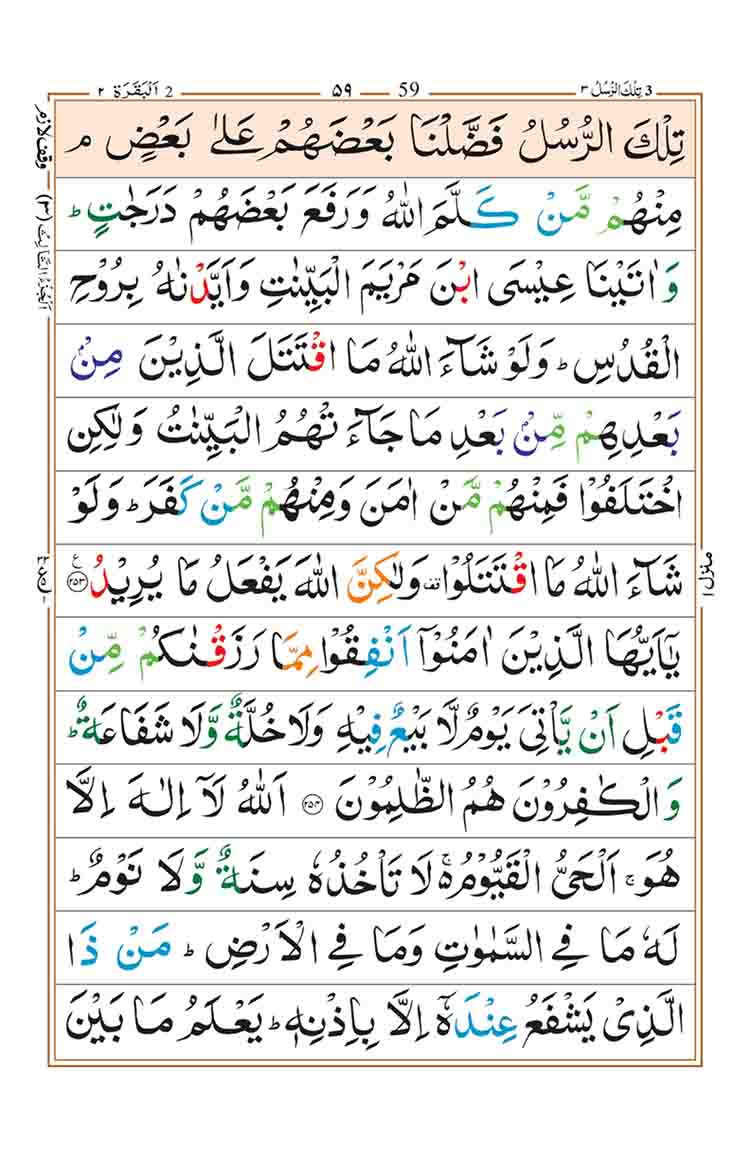 3 تِلْكَ الرُّسُلُ ٣ 59 ۵۹ 2 اَلْبَقَرَة ٢
تِلْكَ الرُّسُلُ فَضَّلْنَا بَعْضَهُمْ عَلٰى بَعْضٍ ۘ
مِنْهُمْ مَّنْ كَلَّمَ اللّٰهُ وَرَفَعَ بَعْضَهُمْ دَرَجٰتٍ ؕ
وَاٰتَيْنَا عِيْسَى ابْنَ مَرْيَمَ الْبَيِّنٰتِ وَاَيَّدْنٰهُ بِرُوْحِ
الْقُدُسِ ؕ وَلَوْ شَآءَ اللّٰهُ مَا اقْتَتَلَ الَّذِيْنَ مِنْۢ
بَعْدِهِمْ مِّنْۢ بَعْدِ مَا جَآءَتْهُمُ الْبَيِّنٰتُ وَلٰكِنِ
اخْتَلَفُوْا فَمِنْهُمْ مَّنْ اٰمَنَ وَمِنْهُمْ مَّنْ كَفَرَ ؕ وَلَوْ
شَآءَ اللّٰهُ مَا اقْتَتَلُوْا قف وَلٰكِنَّ اللّٰهَ يَفْعَلُ مَا يُرِيْدُ ۝٢٥٣ ع
يٰۤاَيُّهَا الَّذِيْنَ اٰمَنُوْۤا اَنْفِقُوْا مِمَّا رَزَقْنٰكُمْ مِّنْ
قَبْلِ اَنْ يَّاْتِىَ يَوْمٌ لَّا بَيْعٌ فِيْهِ وَلَا خُلَّةٌ وَّلَا شَفَاعَةٌ ؕ
وَالْكٰفِرُوْنَ هُمُ الظّٰلِمُوْنَ ۝٢٥٤ اَللّٰهُ لَاۤ اِلٰهَ اِلَّا
هُوَ ۚ اَلْحَىُّ الْقَيُّوْمُ ۚ۬ لَا تَاْخُذُهٗ سِنَةٌ وَّلَا نَوْمٌ ؕ
لَهٗ مَا فِى السَّمٰوٰتِ وَمَا فِى الْاَرْضِ ؕ مَنْ ذَا
الَّذِىْ يَشْفَعُ عِنْدَهٗۤ اِلَّا بِاِذْنِهٖ ؕ يَعْلَمُ مَا بَيْنَ
وقف لازم
اَلْجُزْءُ الثَّالِثُ (٣)
منزل ١